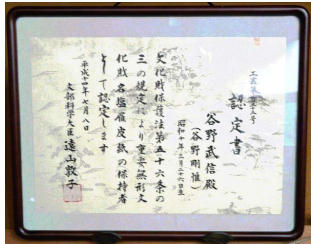 認定書
谷野武信殿
（谷野剛惟）
昭和十年三月二十六日生
文化財保護法第五十六条の
三の規定により重要無形文
化財名塩雁皮紙の保持者
として認定します
平成十四年七月八日
文部科学大臣 遠山敦子